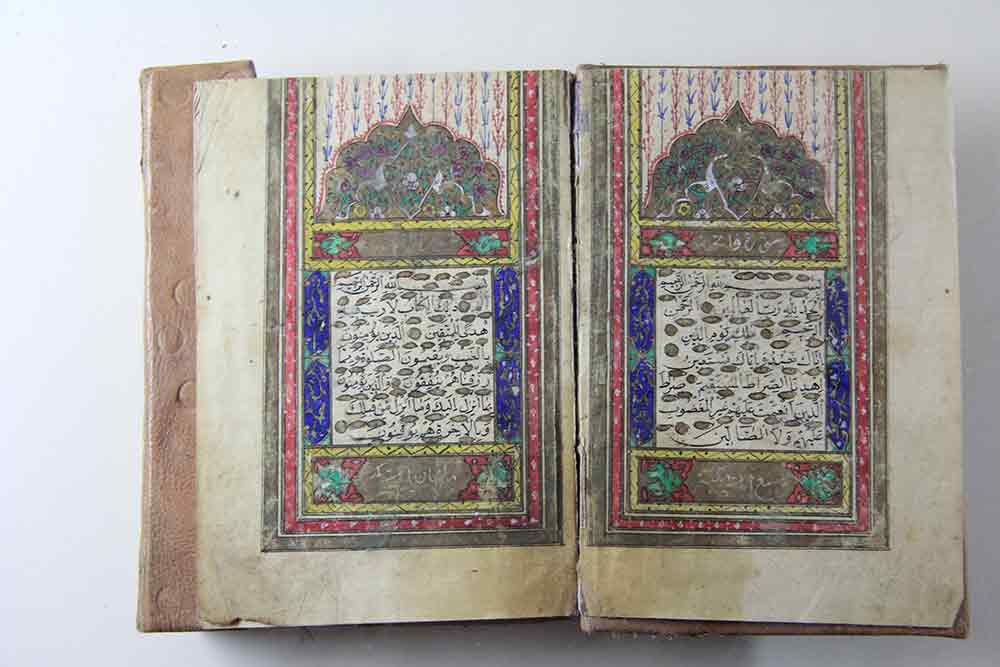 بسم الله الرحمن الرحيم
الحمد لله رب العالمين الرحمن
الرحيم ملك يوم الدين
اياك نعبد واياك نستعين
اهدنا الصراط المستقيم صراط
الذين انعمت عليهم غير المغضوب
عليهم ولا الضالين
بسم الله الرحمن الرحيم
الم ذلك الكتاب لا ريب فيه
هدى للمتقين الذين يؤمنون
بالغيب ويقيمون الصلوة ومما
رزقناهم ينفقون والذين يؤمنون
بما انزل اليك وما انزل من قبلك
وبالاخرة هم يوقنون